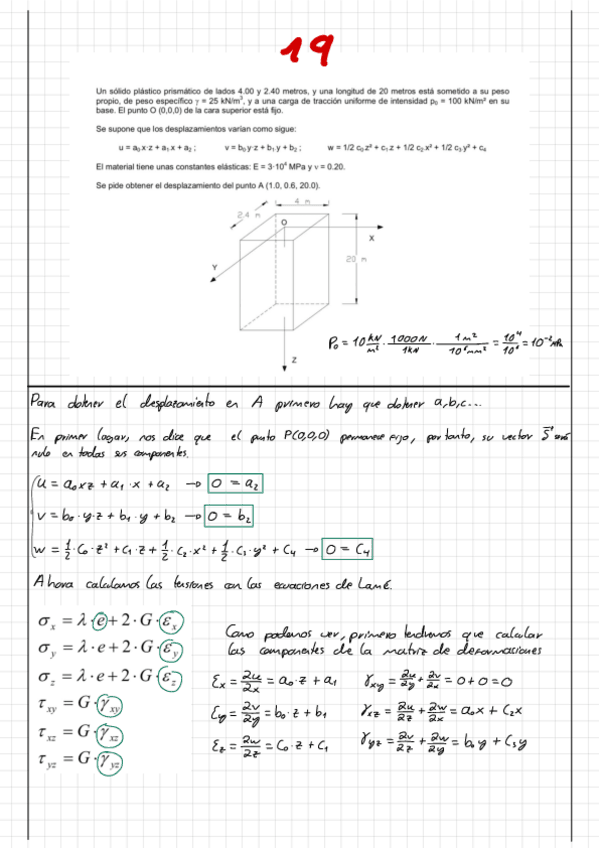 19
Un sólido plástico prismático de lados 4.00 y 2.40 metros, y una longitud de 20 metros está sometido a su peso
propio, de peso específico γ = 25 kN/m³, y a una carga de tracción uniforme de intensidad p₀ = 100 kN/m² en su
base. El punto O (0,0,0) de la cara superior está fijo.
Se supone que los desplazamientos varían como sigue:
u = a₀ x·z + a₁ x + a₂ ; v = b₀ y·z + b₁ y + b₂ ; w = 1/2 c₀ z² + c₁ z + 1/2 c₂ x² + 1/2 c₃ y² + c₄
El material tiene unas constantes elásticas: E = 3·10⁴ MPa y ν = 0.20.
Se pide obtener el desplazamiento del punto A (1.0, 0.6, 20.0).
4 m
2.4 m
O
X
Y
20 m
Z
P₀ = 10 kN/m² · 1000N/1kN · 1m²/10⁶mm² = 10⁴/10⁶ = 10⁻² MPa
Para obtener el desplazamiento en A primero hay que obtener a,b,c...
En primer lugar, nos dice que el punto P(0,0,0) permanece fijo, por tanto, su vector será
nulo en todas sus componentes.
u = a₀xz + a₁·x + a₂ → 0 = a₂
v = b₀·y·z + b₁·y + b₂ → 0 = b₂
w = 1/2·c₀·z² + c₁·z + 1/2·c₂·x² + 1/2·c₃·y² + c₄ → 0 = c₄
Ahora calculamos las tensiones con las ecuaciones de Lamé.
σx = λ·e + 2·G·εx
σy = λ·e + 2·G·εy
σz = λ·e + 2·G·εz
τxy = G·γxy
τxz = G·γxz
τyz = G·γyz
Como podemos ver, primero tendremos que calcular
las componentes de la matriz de deformaciones
εx = ∂u/∂x = a₀·z + a₁ γxy = ∂u/∂y + ∂v/∂x = 0+0=0
εy = ∂v/∂y = b₀·z + b₁ γxz = ∂u/∂z + ∂w/∂x = a₀x + c₂x
εz = ∂w/∂z = c₀·z + c₁ γyz = ∂v/∂z + ∂w/∂y = b₀y + c₃y